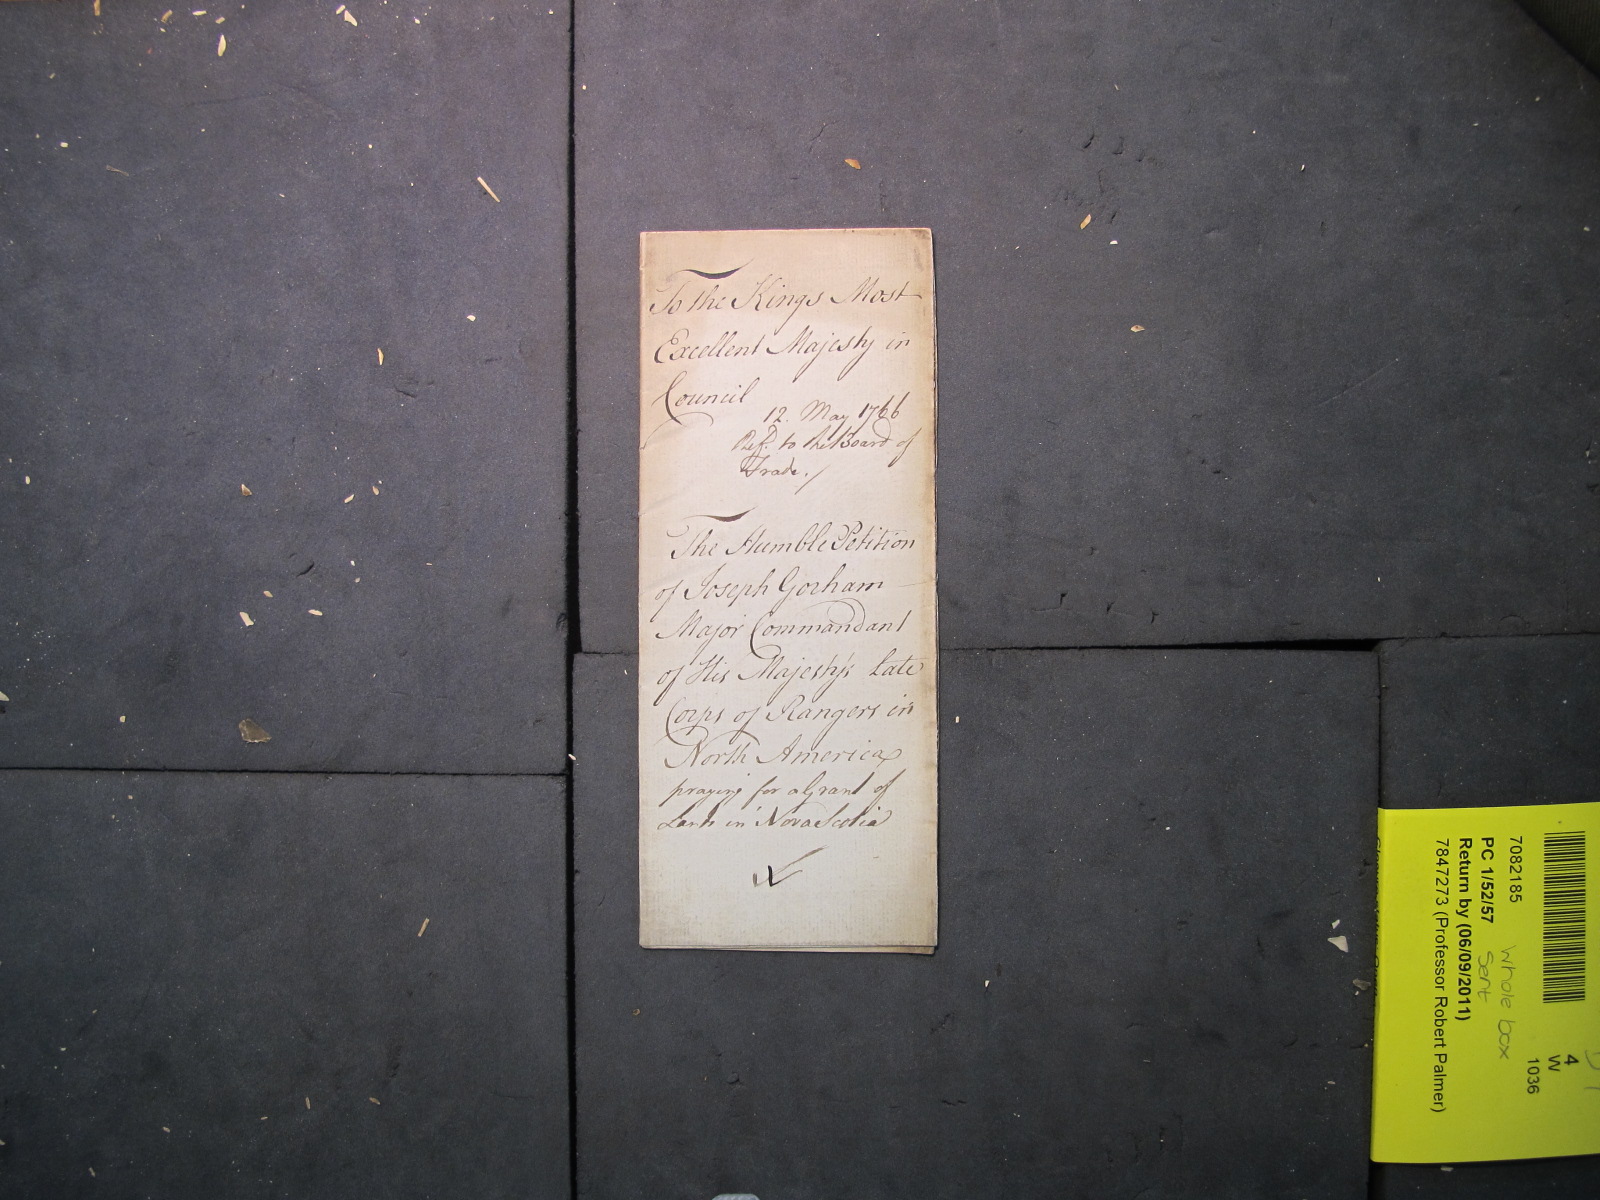 To the Kings Most
Excellent Majesty in
Council
12. May 1766
Ref.d to the Board of
Trade./
The Humble Petition
of Joseph Gorham
Major Commandant
of His Majesty's Late
Corps of Rangers in
North America
praying for a Grant of
Lands in Nova Scotia
7082185
PC 1/52/57
Return by (06/09/2011)
7847273 (Professor Robert Palmer)
whole box
sent
4
W
1036